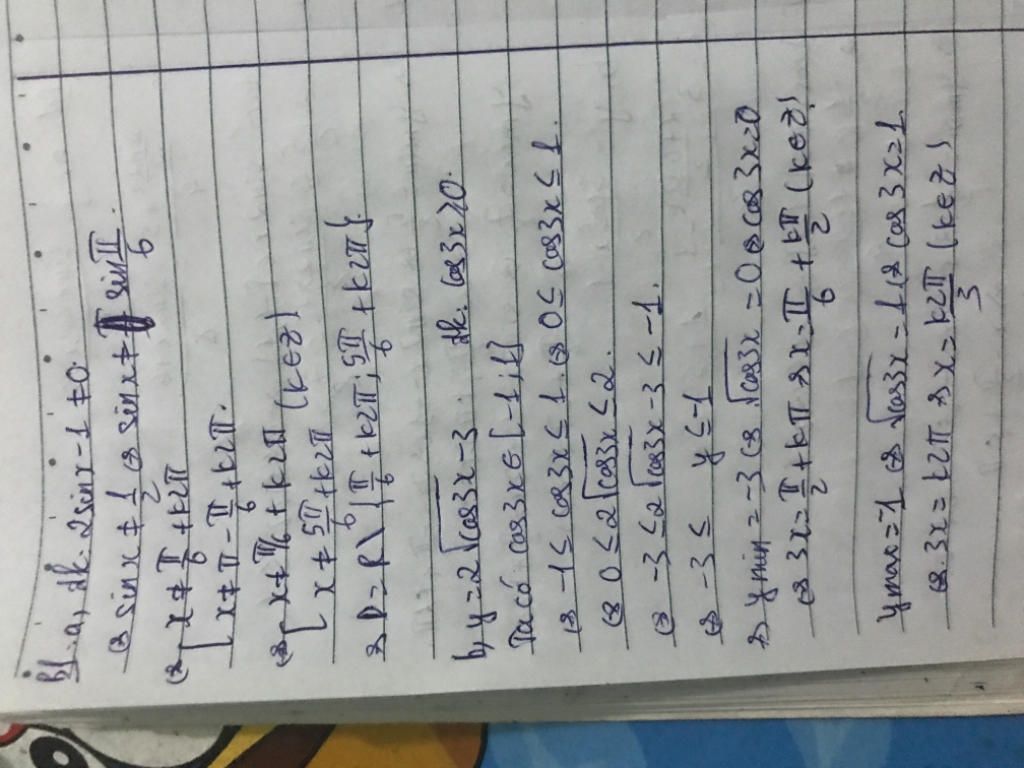 B1. a, đk. 2sinx - 1 ≠ 0.
⇔ sinx ≠ 1/2 ⇔ sinx ≠ sin π/6.
⇔ [ x ≠ π/6 + k2π
[ x ≠ π - π/6 + k2π.
⇔ [ x ≠ π/6 + k2π (k∈Z)
[ x ≠ 5π/6 + k2π
⇒ D = R \ {π/6 + k2π; 5π/6 + k2π}.
b, y = 2√cos3x - 3 đk. cos3x ≥ 0.
Ta có cos3x ∈ [-1,1]
⇔ -1 ≤ cos3x ≤ 1. ⇔ 0 ≤ cos3x ≤ 1.
⇔ 0 ≤ 2√cos3x ≤ 2.
⇔ -3 ≤ 2√cos3x - 3 ≤ -1.
⇔ -3 ≤ y ≤ -1
⇒ ymin = -3 ⇔ √cos3x = 0 ⇔ cos3x = 0
⇔ 3x = π/2 + kπ ⇒ x = π/6 + kπ/2 (k∈Z)
ymax = -1 ⇔ √cos3x = 1 ⇔ cos3x = 1.
⇔. 3x = k2π ⇒ x = k2π/3 (k∈Z)